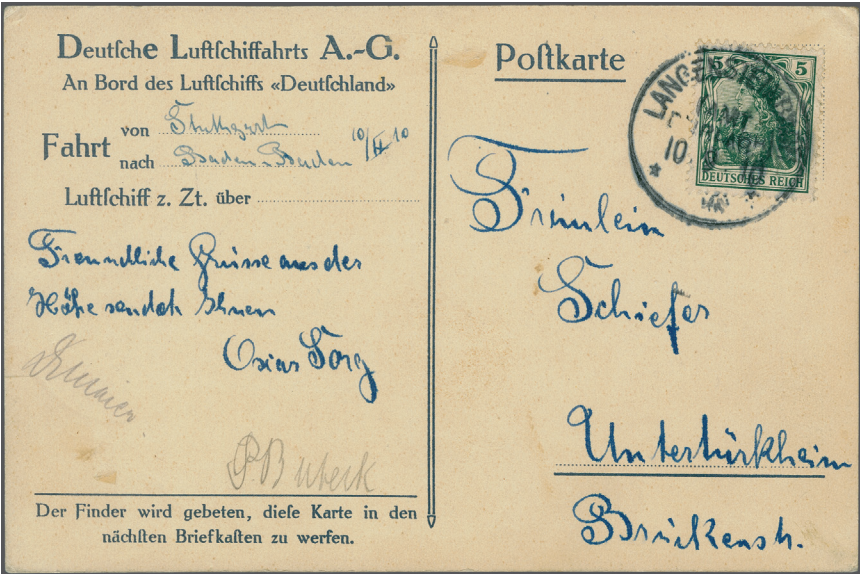 Deutſche Luftſchiffahrts A.-G.
An Bord des Luftſchiffs «Deutſchland»
Fahrt von Stuttgart
nach Baden-Baden 10/IX 10
Luftſchiff z. Zt. über
Freundliche Grüsse aus der
Höhe sendet Ihnen
Sorg
P. Bubeck
Der Finder wird gebeten, dieſe Karte in den
nächſten Briefkaſten zu werfen.
Poſtkarte
5 5
DEUTSCHES REICH
Fräulein
Schiefer
Untertürkheim
Brückenstr.